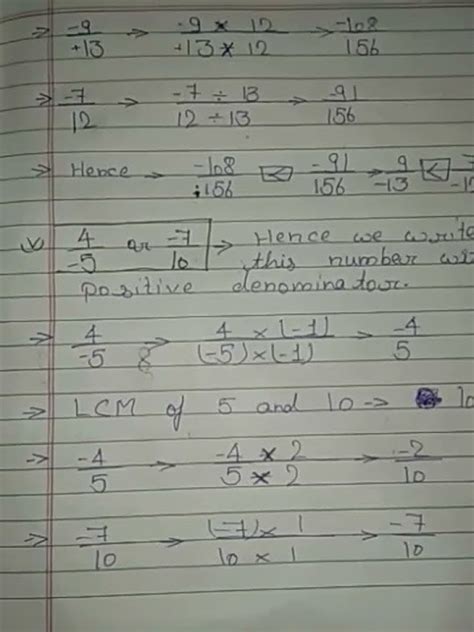 → -9/+13 → -9 × 12/+13 × 12 → -108/156
→ -7/12 → -7 ÷ 13/12 ÷ 13 → -91/156
→ Hence → -108/156 < -91/156 → 9/-13 <
v) 4/-5 or -7/10 → Hence we write
this number
positive denominatour.
→ 4/-5 → 4 × (-1)/(-5) × (-1) → -4/5
→ LCM of 5 and 10 → 10
→ -4/5 → -4 × 2/5 × 2 → -2/10
→ -7/10 → (-7) × 1/10 × 1 → -7/10